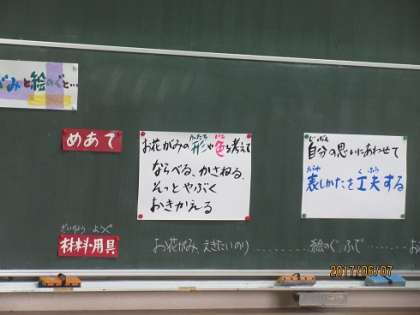 がみと絵のぐと…
めあて
かたち いろ
お花がみの形や色を考えて
ならべる、かさねる、
そっとやぶく
おきかえる
じぶん
自分の思いにあわせて
あらわ くふう
表しかたを工夫する
ざいりょう ようぐ
材料・用具
お花がみ えきたいのり………… 絵のぐ、ふで………お
2017/06/07